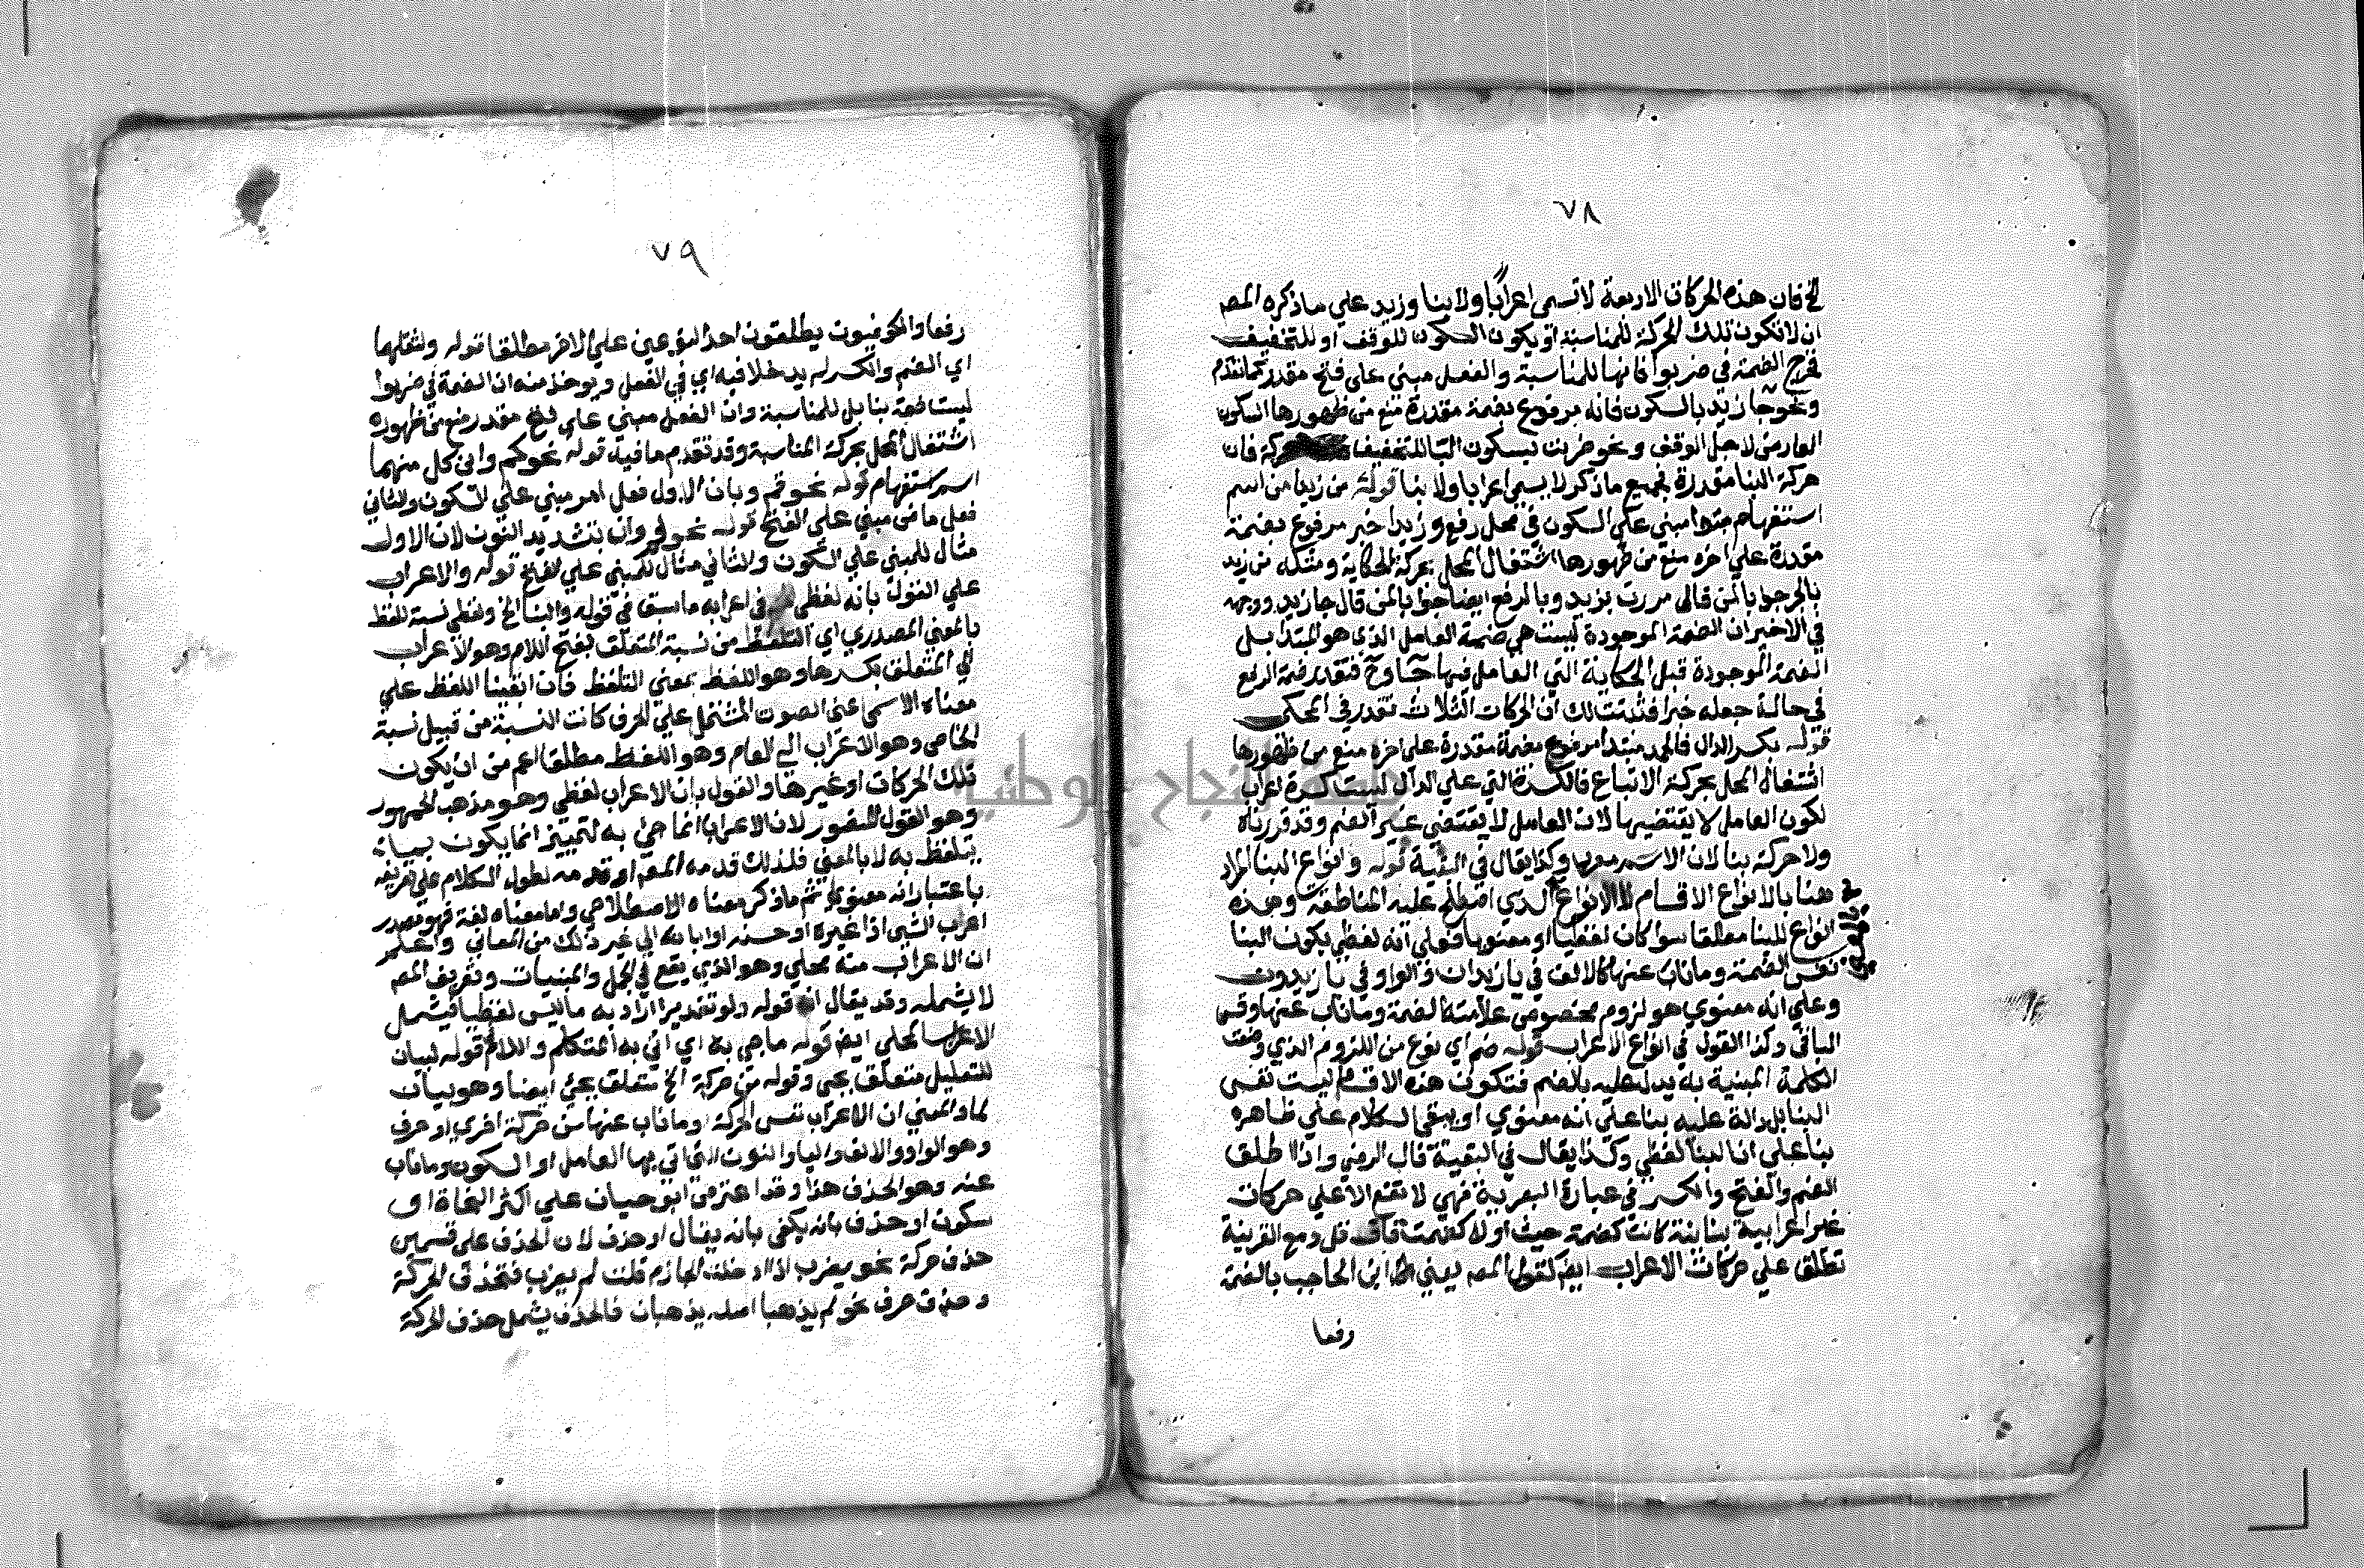 ٧٨
الخ فان هذه الحركات الاربعة لا تسمى اعرابا ولا بنا وزيد علي ما ذكره المص
ان لا تكون تلك الحركة للمناسبة او يكون السكون للوقف او للتخفيف
فخرج الضمة في ضربوا فانها للمناسبة والفعل مبني على فتح مقدر كما تقدم
ونحو جا زيد بالسكون فانه مرفوع بضمة مقدرة منع من ظهورها السكون
العارض لاجل الوقف ونحو ضربت بسكون البا للتخفيف حركة فان
حركة البنا مقدرة فجميع ما ذكر لا يسمي اعرابا ولا بنا قوله من زيد من اسم
استفهام مبتدا مبني علي السكون في محل رفع وزيد خبر مرفوع بضمة
مقدرة علي اخره منع من ظهورها اشتغال المحل بحركة الحكاية ومثله من زيد
بالجر جوابا لمن قال مررت بزيد وبالرفع ايضا جوابا لمن قال جا زيد ووجهه
في الاخير ان الضمة الموجودة ليست هي ضمة العامل الذي هو المبتدا بل
الضمة الموجودة قبل الحكاية التي العامل فيها جا وح فتقدر ضمة الرفع
في حالة جعله خبرا فثبت لك ان الحركات الثلاث تقدر في المحكي
قوله بكسر الدال فالحمد مبتدا مرفوع بضمة مقدرة علي اخره منع من ظهورها
اشتغال المحل بحركة الاتباع فالكسرة التي علي الدال ليست كسرة اعراب
لكون العامل لا يقتضيها لان العامل لا يقتضي غير الضم وقد قررناه
ولا حركة بنا لان الاسم معرب وكذا يقال في البقية قوله وانواع البنا المراد
هنا بالانواع الاقسام لا الانواع الذي اصطلح عليه المناطقة وهذه
انواع للبنا مطلقا سوا كان لفظيا او معنويا فعلي انه لفظي يكون البنا
نفس الضمة وما ناب عنها كالالف في يا زيدان والواو في يا زيدون
وعلي انه معنوي هو لزوم مخصوص علامته الضمة وما ناب عنها وقس
الباقي وكذا القول في انواع الاعراب قوله ضم اي نوع من اللزوم الذي وضعت
الكلمة المبنية به يدل عليه بالضم فتكون هذه الاقسام ليست نفس
البنا بل دالة عليه بنا علي انه معنوي او يبقي الكلام علي ظاهره
بنا علي ان البنا لفظي وكذا يقال في البقية قال الرضي واذا اطلق
الضم والفتح والكسر في عبارة البصرية فهي لا تقع الا علي حركات
غير اعرابية بنائية كانت كضمة حيث اولا كضمة قاف قل ومع القرينة
تطلق علي حركات الاعراب ايض كقول المص يعني ابن الحاجب بالضمة
رفعا
٧٩
رفعا والكوفيون يطلقون احد النوعين علي الاخر مطلقا قوله ولثقلهما
اي الضم والكسر لم يدخلا فيه اي في الفعل ويوخذ منه ان الضمة في ضربوا
ليست ضمة بنا بل للمناسبة وان الفعل مبني علي فتح مقدر منع من ظهوره
اشتغال المحل بحركة المناسبة وقد تقدم ما فيه قوله نحو كم واين كل منهما
اسم استفهام قوله نحو قم وبان الاول فعل امر مبني علي السكون والثاني
فعل ماض مبني علي الفتح قوله نحو لم وان بتشديد النون لان الاول
مثال للمبني علي السكون والثاني مثال للمبني علي الفتح قوله والاعراب
علي القول بانه لفظي في اعرابه ما سبق في قوله والبنا الخ ولفظي نسبة للفظ
بالمعني المصدري اي التلفظ من نسبة المتعلق بفتح اللام وهو الاعراب
الي المتعلق بكسرها وهو اللفظ بمعني التلفظ فان ابقينا اللفظ علي
معناه الاسمي اعني الصوت المشتمل علي الحرف كانت النسبة من قبيل نسبة
الخاص وهو الاعراب الي العام وهو اللفظ مطلقا اعم من ان يكون
تلك الحركات او غيرها والقول بان الاعراب لفظي وهو مذهب الجمهور
وهو القول المنصور لان الاعراب انما جئ به لتمييز انما يكون بما
يتلفظ به لا بالمعني فلذلك قدمه المص او قدمه لطول الكلام علي تعريفه
باعتبار انه معنوي ثم ما ذكر معناه الاصطلاحي واما معناه لغة فهو مصدر
اعرب الشي اذا غيره او حسنه او ابانه الي غير ذلك من المعاني واعلم
ان الاعراب منه محلي وهو الذي يقع في الجمل والمبنيات وتعريف المص
لا يشمله وقد يقال ان قوله ولو تقديرا اراد به ما ليس لفظيا فيشمل
الاعراب المحلي ايض قوله ما جي به اي اتي به المتكلم واللام قوله لبيان
للتعليل متعلق بجي وقوله من حركة الخ متعلق بجئ ايضا وهو بيان
لما والمعني ان الاعراب نفس الحركة وما ناب عنها من حركة اخري او حرف
وهو الواو والالف واليا والنون التي اتي بها العامل او السكون وما ناب
عنه وهو الحذف هذا وقد اعترض ابو حيان علي اكثر النحاة او
سكون او حذف بانه يكفي بانه يقال او حذف لان الحذف علي قسمين
حذف حركة نحو يضرب اذا ادخلت الجازم قلت لم يضرب فتحذف الحركة
وحذف حرف نحو لم يذهبا اصله يذهبان فالحذف يشمل حذف الحركة